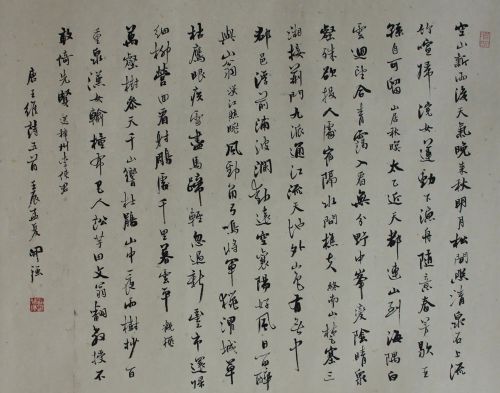 空山新雨後天氣晚來秋明月松間照清泉石上流
竹喧歸浣女蓮動下漁舟隨意春芳歇王
孫自可留 山居秋暝 太乙近天都連山到海隅白
雲迴望合青靄入看無分野中峰變陰晴衆
壑殊欲投人處宿隔水問樵夫 終南山 楚塞三
湘接荆門九派通江流天地外山色有無中
郡邑浮前浦波瀾動遠空襄陽好風日留醉
與山翁 漢江臨眺 風勁角弓鳴將軍獵渭城草
枯鷹眼疾雪盡馬蹄輕忽過新豐市還歸
細柳營回看射鵰處千里暮雲平 觀獵
萬壑樹參天千山響杜鵑山中一夜雨樹杪百
重泉漢女輸橦布巴人訟芋田文翁翻教授不
敢倚先賢 送梓州李使君
唐王維詩五首 壬辰孟夏